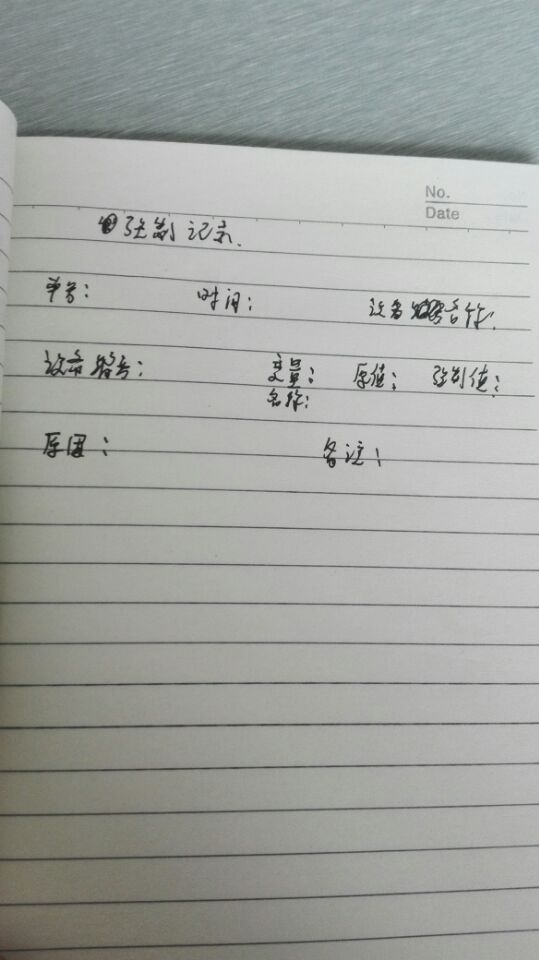 No.
Date
强制记录.
单号: 时间: 设备名称.
设备路号: 变量: 原值: 强制值:
名称:
原因: 备注: